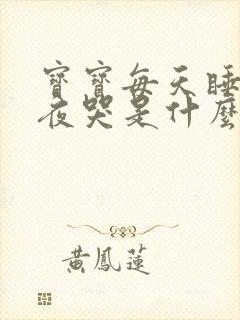 寶寶每天睡
夜哭是什麼
黃鳳蓮